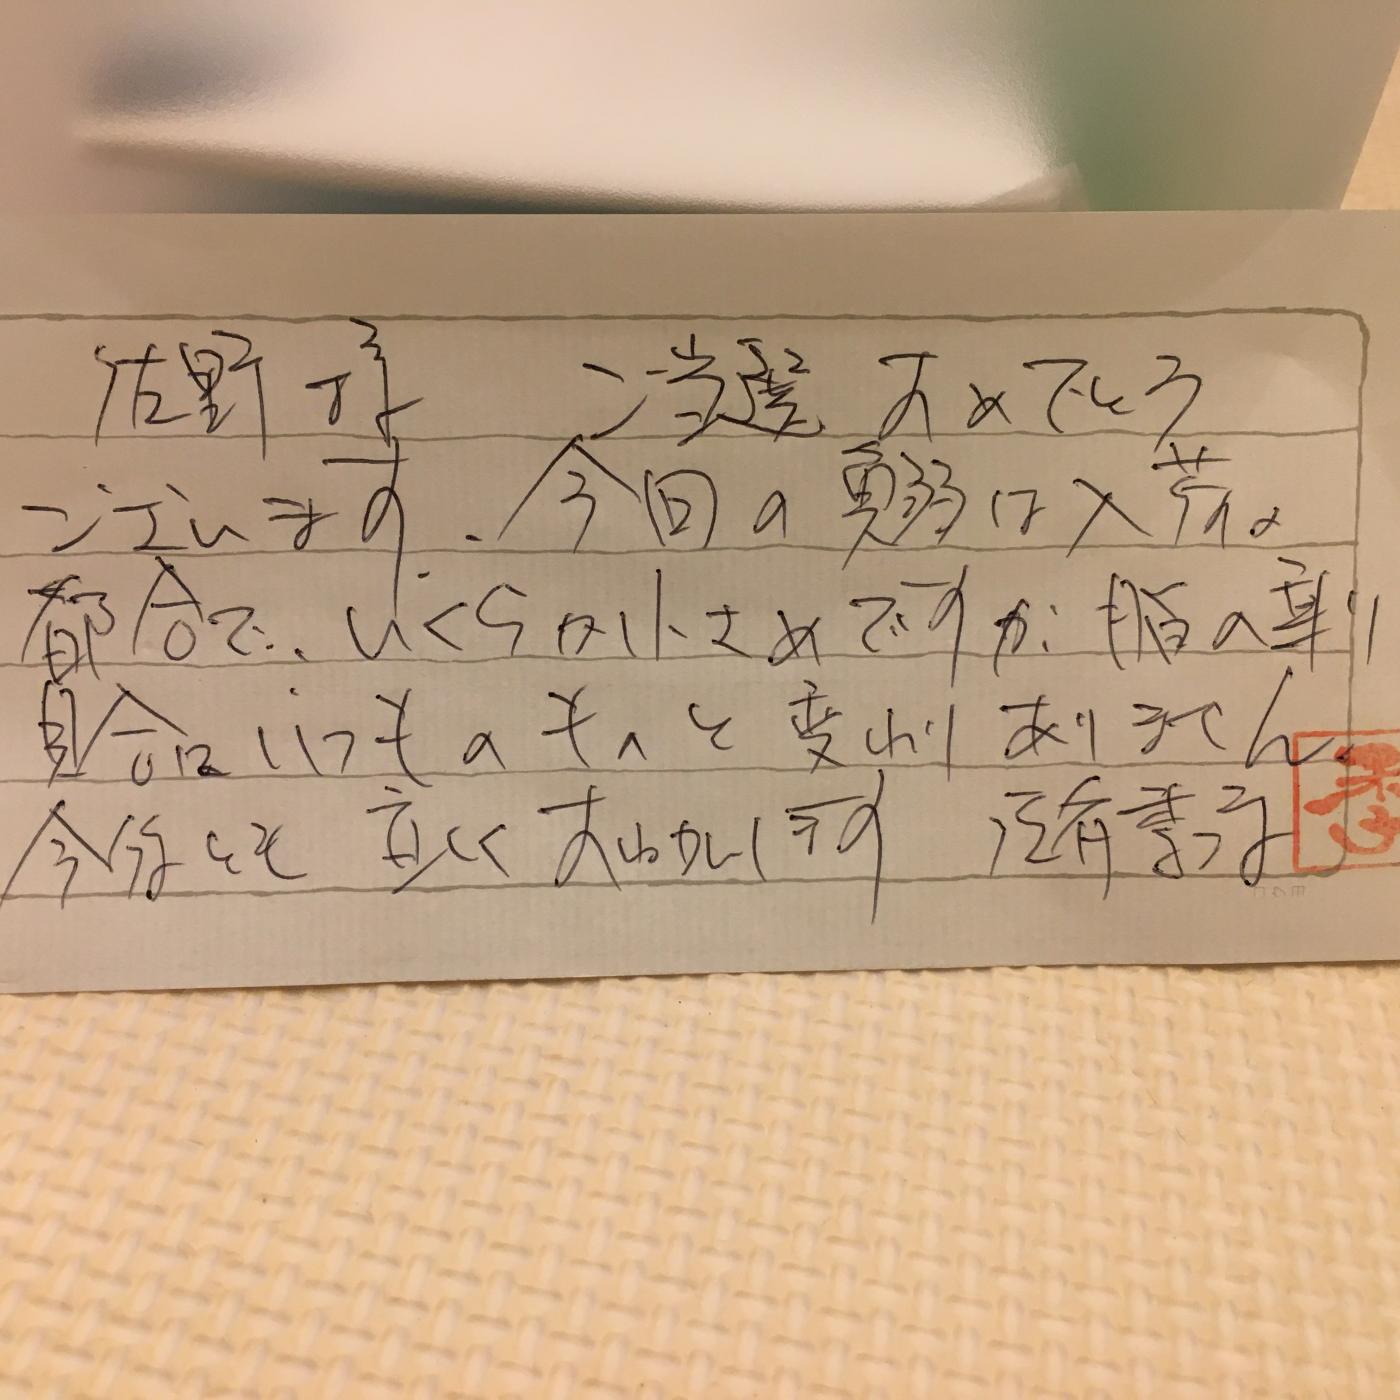 佐野様 ご当選おめでとう
ございます.今回の 入荷の
都合で、いくらか小さめですが脂の乗り
具合はいつものものと変わりありません.
今後とも宜しくおねがいします